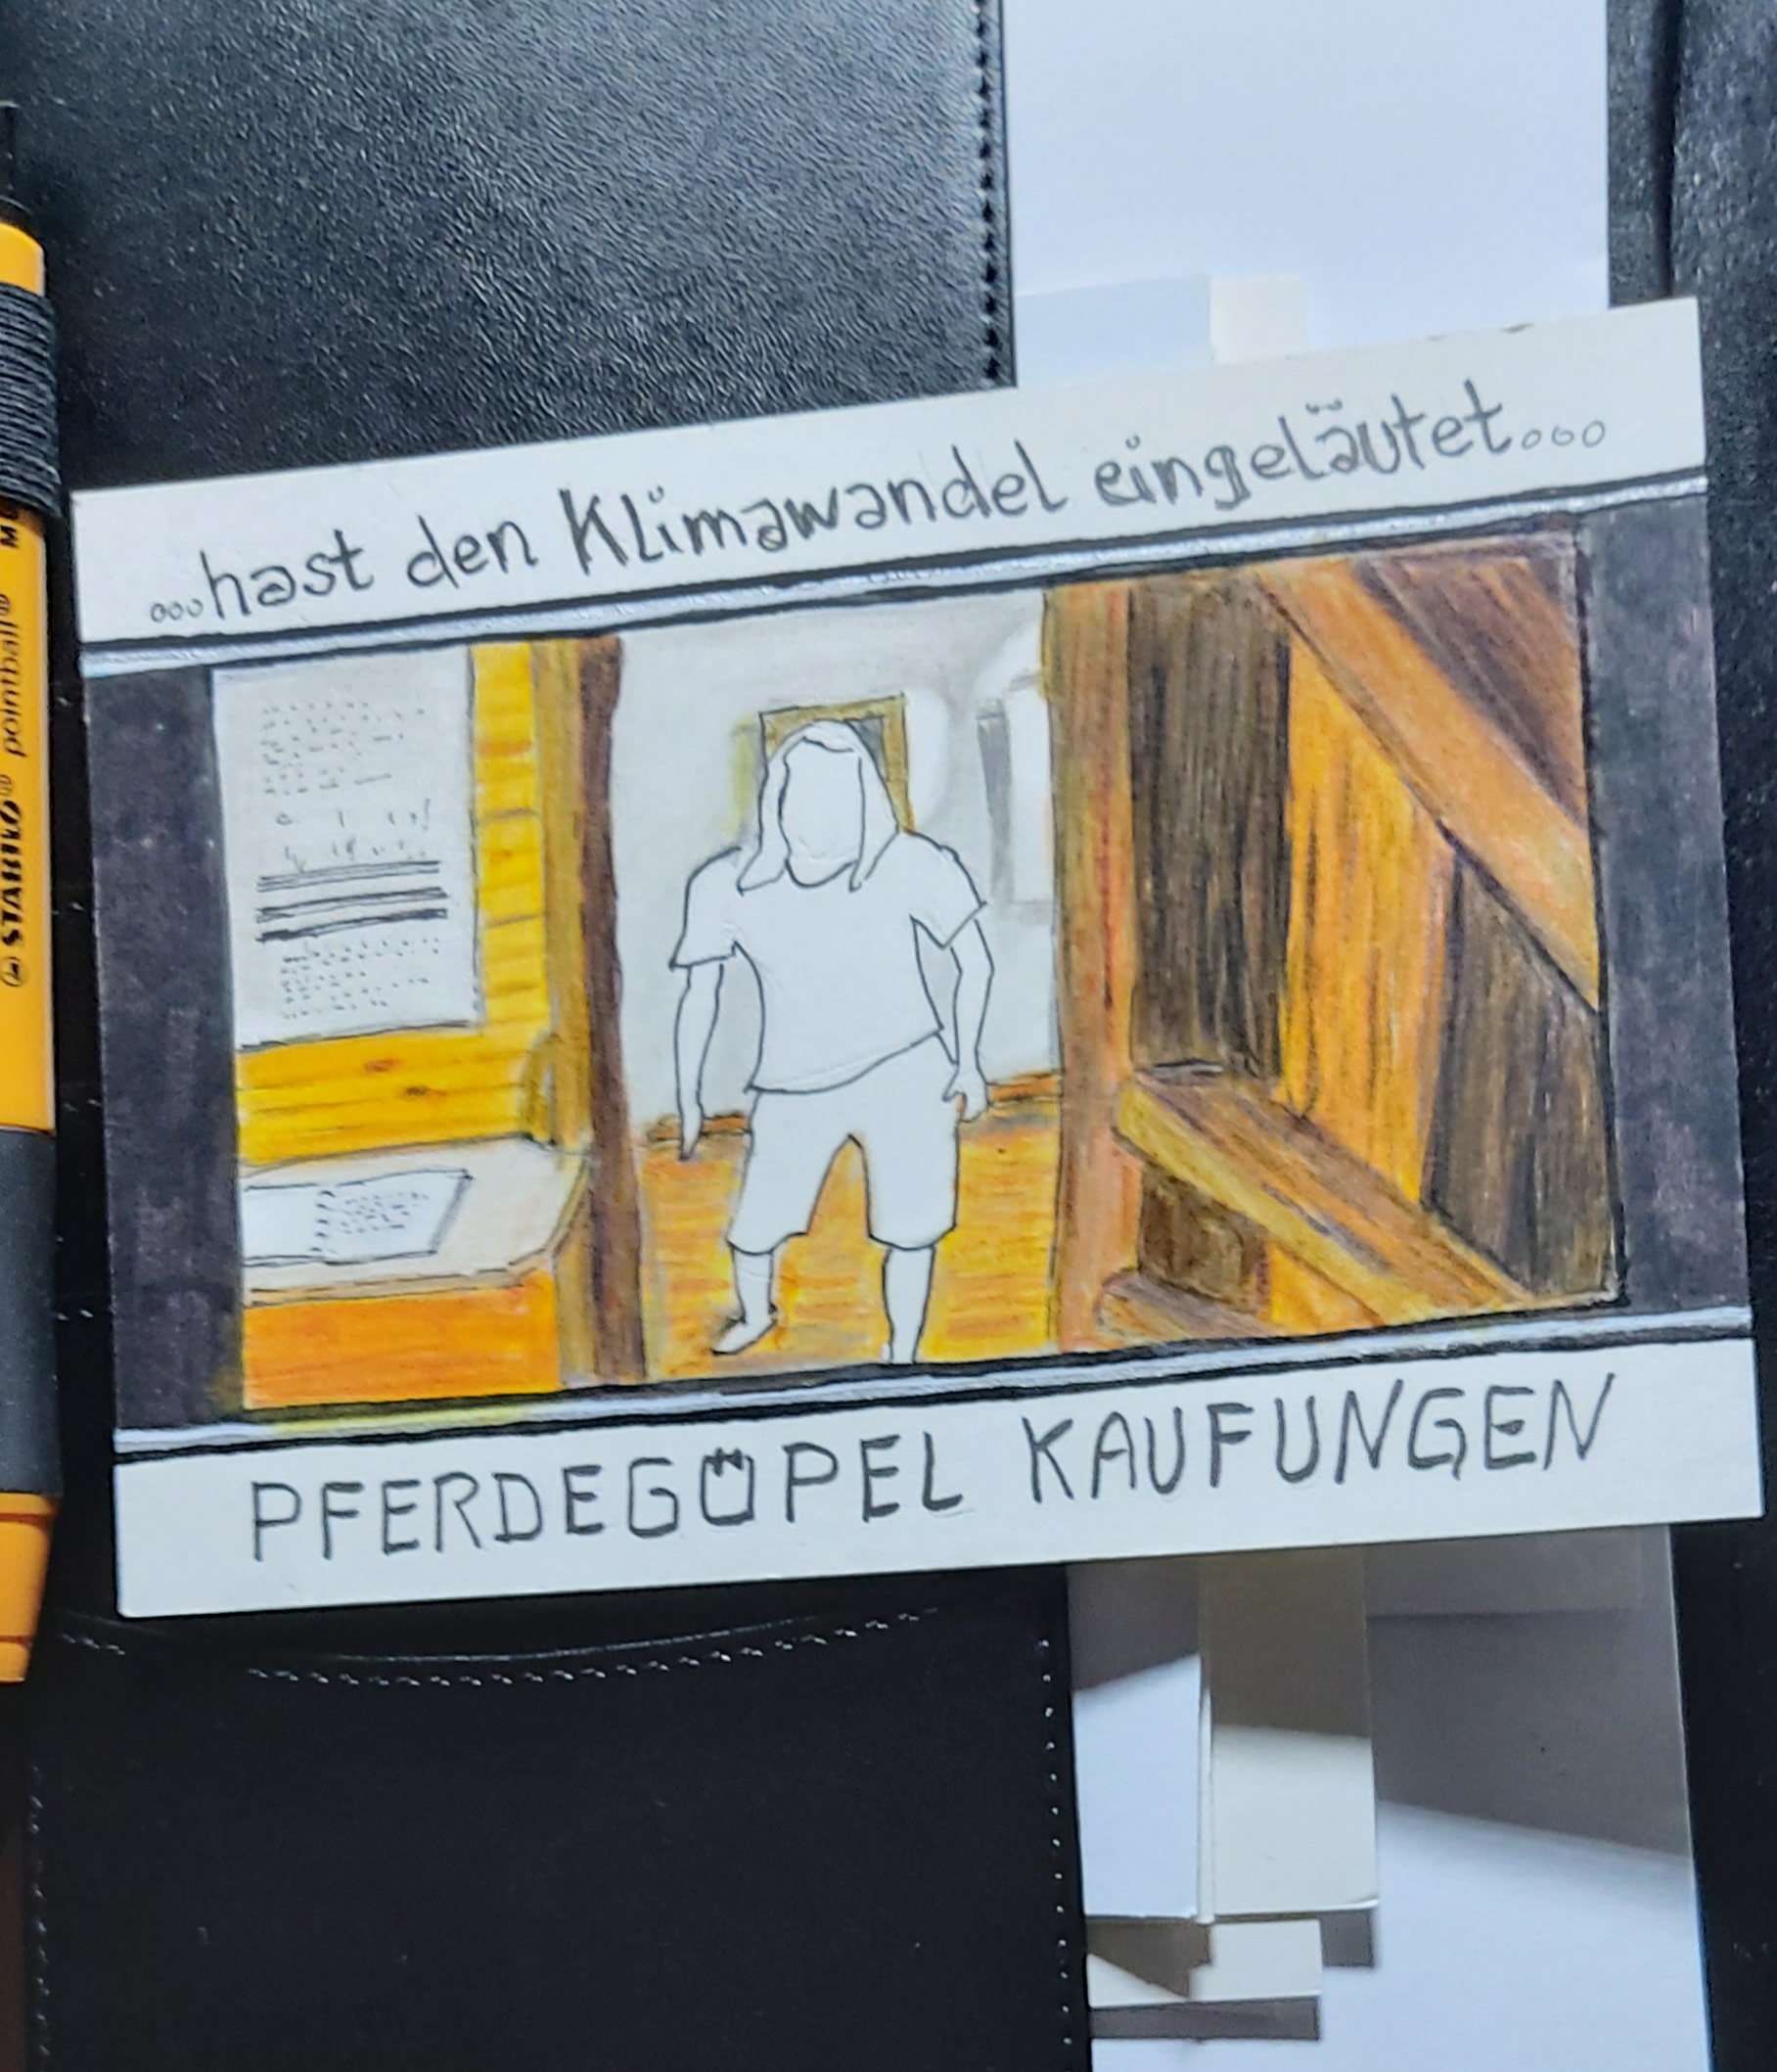 ...hast den Klimawandel eingeläutet...
PFERDEGÖPEL KAUFUNGEN
STABILO® pointball®